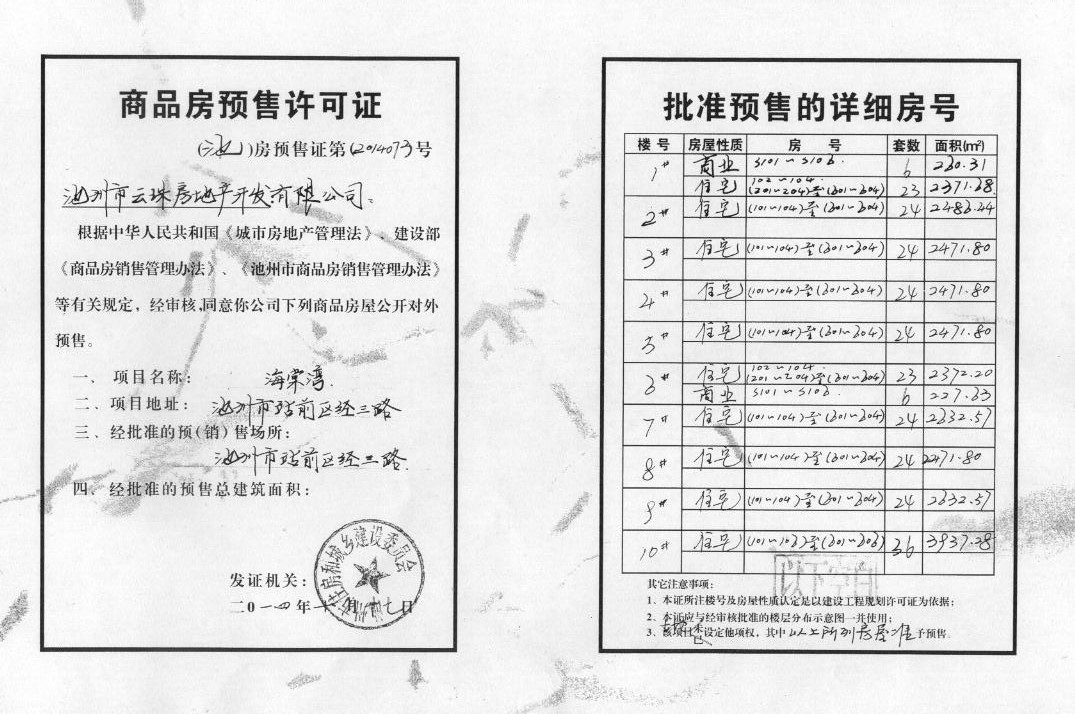 商品房预售许可证
(池)房预售证第(2014073)号
池州市云珠房地产开发有限公司:
根据中华人民共和国《城市房地产管理法》、建设部
《商品房销售管理办法》、《池州市商品房销售管理办法》
等有关规定，经审核,同意你公司下列商品房屋公开对外
预售。
一、 项目名称: 海棠湾
二、项目地址: 池州市站前区经三路
三、经批准的预(销)售场所:
池州市站前区经三路
四、经批准的预售总建筑面积:
发证机关:
二0一四年十 月 七日
批准预售的详细房号
楼号 房屋性质 房 号 套数 面积(㎡)
1# 商业 S101~S106. 6 230.31
住宅 102~104. (201~204)至(601~604) 23 2371.38
2# 住宅 (101~104)至(601~604) 24 2483.24
3# 住宅 (101~104)至(601~604) 24 2471.80
4# 住宅 (101~104)至(601~604) 24 2471.80
5# 住宅 (101~104)至(601~604) 24 2471.80
6# 住宅 102~104. (201~204)至(601~604) 23 2372.20
商业 S101~S106. 6 227.33
7# 住宅 (101~104)至(601~604) 24 2332.57
8# 住宅 (101~104)至(601~604) 24 2471.80
9# 住宅 (101~104)至(601~604) 24 2332.57
10# 住宅 (101~106)至(601~606) 36 3937.28
以下空白
其它注意事项:
1、本证所注楼号及房屋性质认定是以建设工程规划许可证为依据;
2、本证应与经审核批准的楼层分布示意图一并使用;
3、该项目 设定他项权，其中以上所列房屋准予预售。